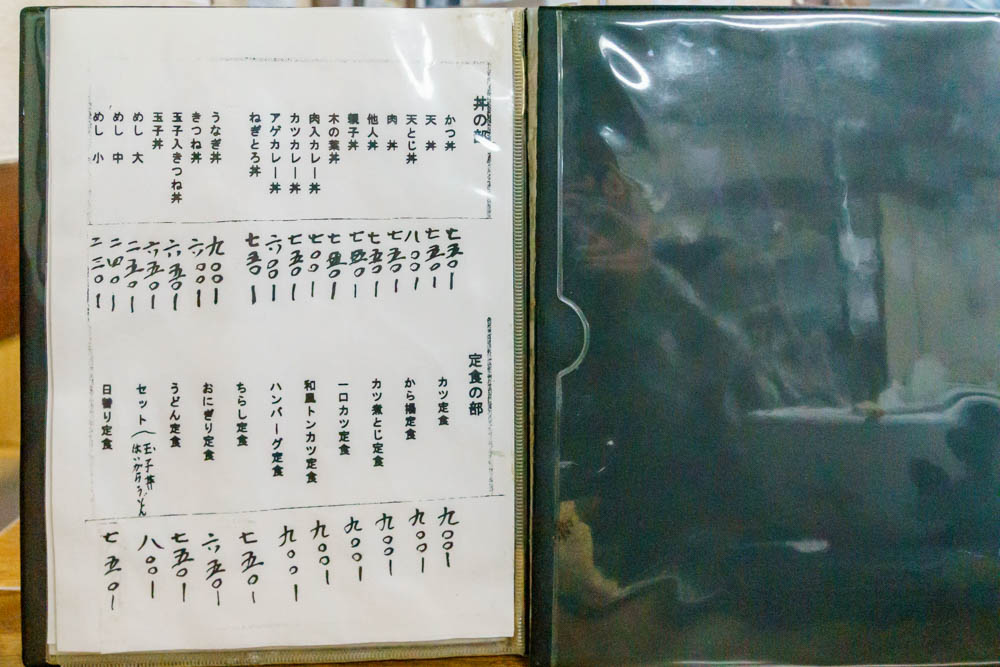 丼の部
かつ丼 七五〇ー
天丼 七五〇ー
天とじ丼 八〇〇ー
肉丼 七五〇ー
他人丼 七五〇ー
親子丼 七五〇ー
木の葉丼 七五〇ー
肉入カレー丼 七〇〇ー
カツカレー丼 七五〇ー
アゲカレー丼 六〇〇ー
ねぎとろ丼 七五〇ー
うなぎ丼 九〇〇ー
きつね丼 六〇〇ー
玉子入きつね丼 六五〇ー
玉子丼 六五〇ー
めし 大 二五〇ー
めし 中 二四〇ー
めし 小 二三〇ー
定食の部
カツ定食 九〇〇ー
から揚定食 九〇〇ー
カツ煮とじ定食 九〇〇ー
一口カツ定食 九〇〇ー
和風トンカツ定食 九〇〇ー
ハンバーグ定食 九〇〇ー
ちらし定食 七五〇ー
おにぎり定食 六五〇ー
うどん定食 七五〇ー
セット（玉子丼 はいからうどん 八〇〇ー
日替り定食 七五〇ー